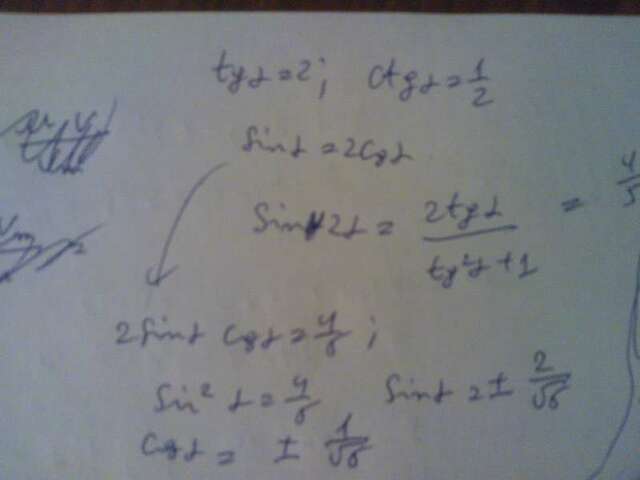 tgα = 2; ctgα = 1/2
sinα = 2cosα
sin 2α = 2tgα / tg²α + 1 = 4/5
2sinα cosα = 4/5;
sin²α = 4/5 sinα = ± 2/√5
cosα = ± 1/√5